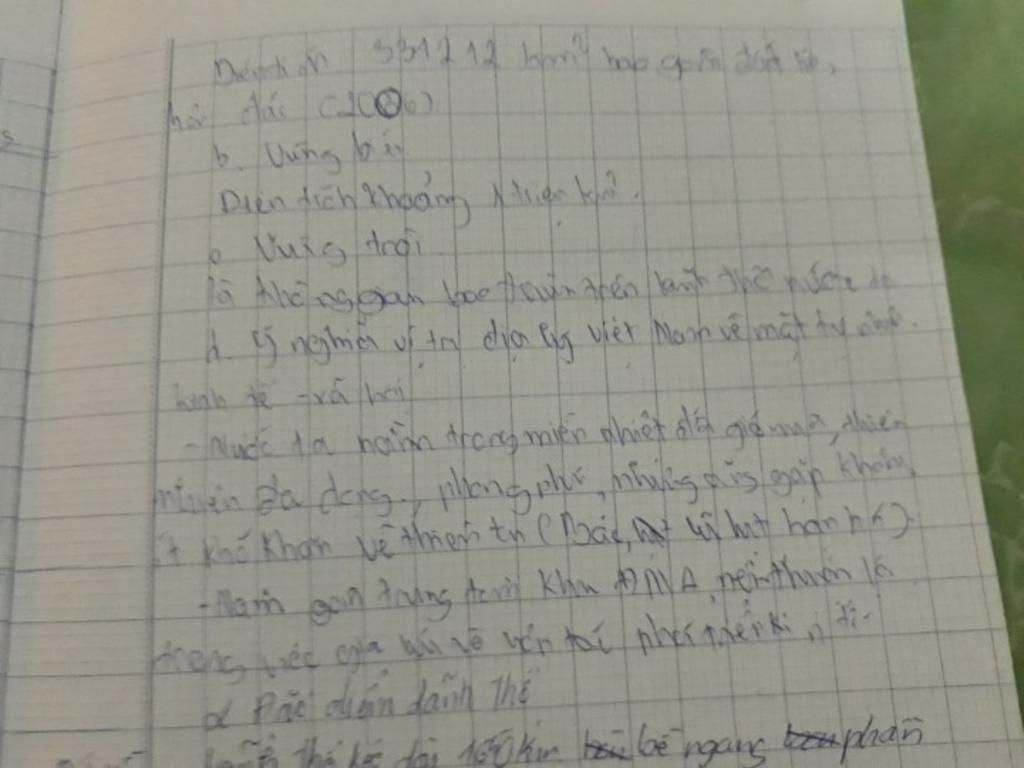 Diện tích 331212 km² bao gồm đất liền,
hải đảo (2006)
b. Vùng biển
Diện tích khoảng 1 triệu km².
c. Vùng trời
là không gian bao trùm trên lãnh thổ nước ta
d. Ý nghĩa vị trí địa lý Việt Nam về mặt tự nhiên.
kinh tế - xã hội
- Nước ta nằm trong miền nhiệt đới gió mùa, thiên
nhiên đa dạng, phong phú, nhưng cũng gặp không
ít khó khăn về thiên tai (Bão, lũ lụt hạn hán)
- Nằm gần trung tâm khu ĐNÁ, nên thuận lợi
trong việc giao lưu về phát triển kinh tế
2 Đặc điểm lãnh thổ
kéo dài 1650km bề ngang phần